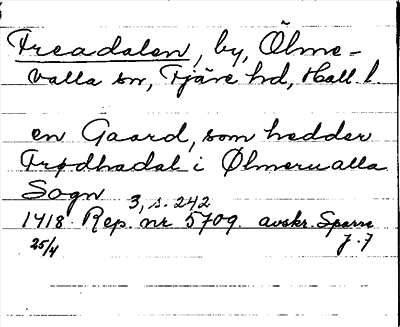 Freadalen, by, Ölme-
valla sn, Fjäre hd, Hall. l.
en Gaard, som hedder
Frødhadal i Ølmerualla
Sogn 3, s. 242
1418 Rep. nr 5709. avskr. Sparre
25/4 f. 7